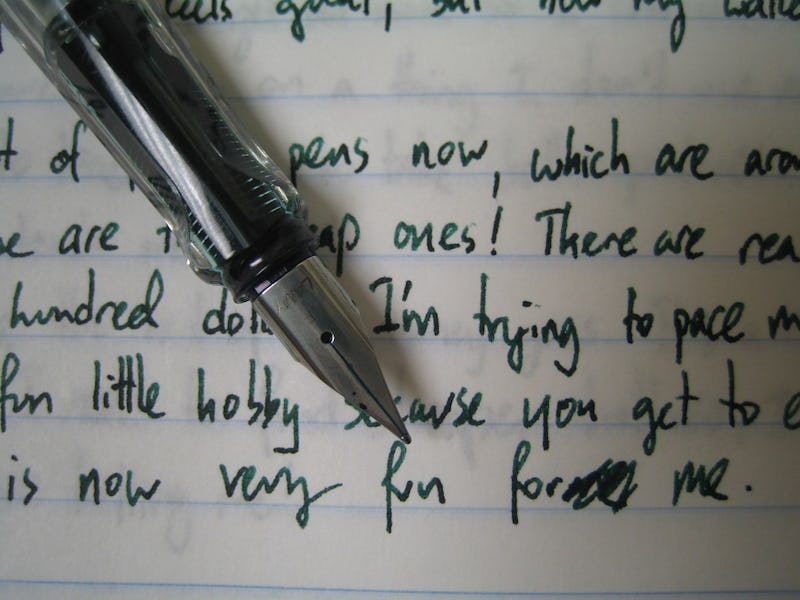 feels good, but now my
t of pens now, which are
are ones! There are
hundred I'm trying to pace
fun little hobby because you get to
is now very fun for me.